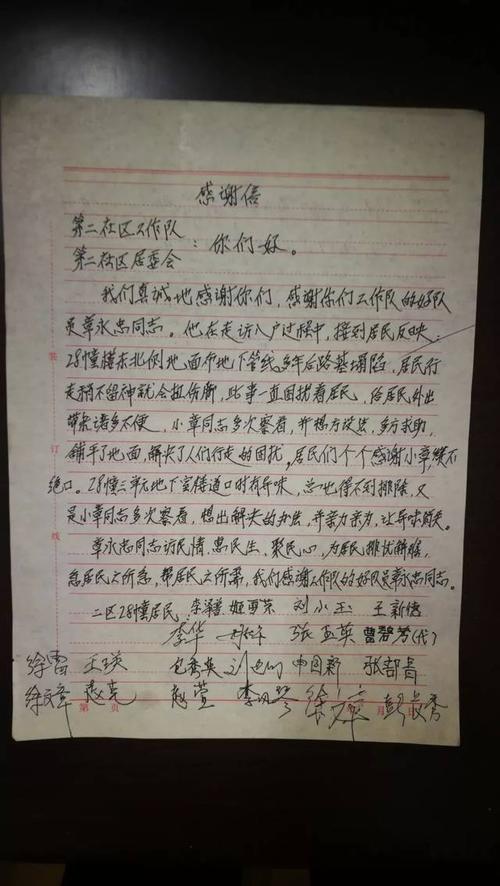 感谢信
第二社区工作队
：你们好。
第二社区居委会
我们真诚地感谢你们，感谢你们工作队的好队
员章永忠同志。他在走访入户过程中，接到居民反映：
28幢楼东北侧地面下地下管线多年后路基塌陷，居民行
走稍不留神就会扭伤脚，此事一直困扰着居民，给居民外出
带来诸多不便，小章同志多次察看，并想方设法，多方求助，
铺平了地面，解决了人们行走的困扰。居民们个个感谢小章赞不
绝口。28幢三单元地下室楼道口时有异味，总也得不到排除，又
是小章同志多次察看，想出解决的办法，并亲力亲为，让异味消失。
章永忠同志访民情、惠民生、聚民心，为居民排忧解难，
急居民之所急，帮居民之所需，我们感谢工作队的好队员章永忠同志。
二区28幢居民：姬要荣 刘小玉 王新德
李华 张玉英 曾碧芳(代)
徐雷 王瑛 包秀英 申国新 张部青
徐文峰 赵克 赵萱
第 页 月 日
装
订
线